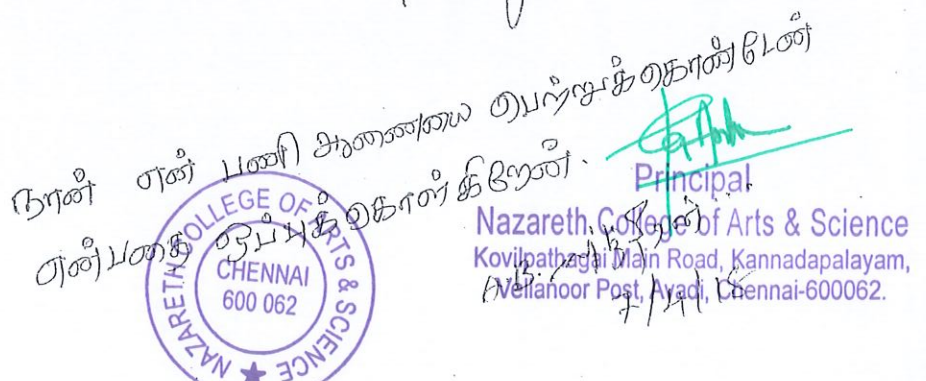 நான் என் பணி ஆணையை பெற்றுக்கொண்டேன்
என்பதை ஒப்புக்கொள்கிறேன்.
NAZARETH COLLEGE OF ARTS & SCIENCE
CHENNAI
600 062
Principal
Nazareth College of Arts & Science
Kovilpathagai Main Road, Kannadapalayam,
Vellanoor Post, Avadi, Chennai-600062.